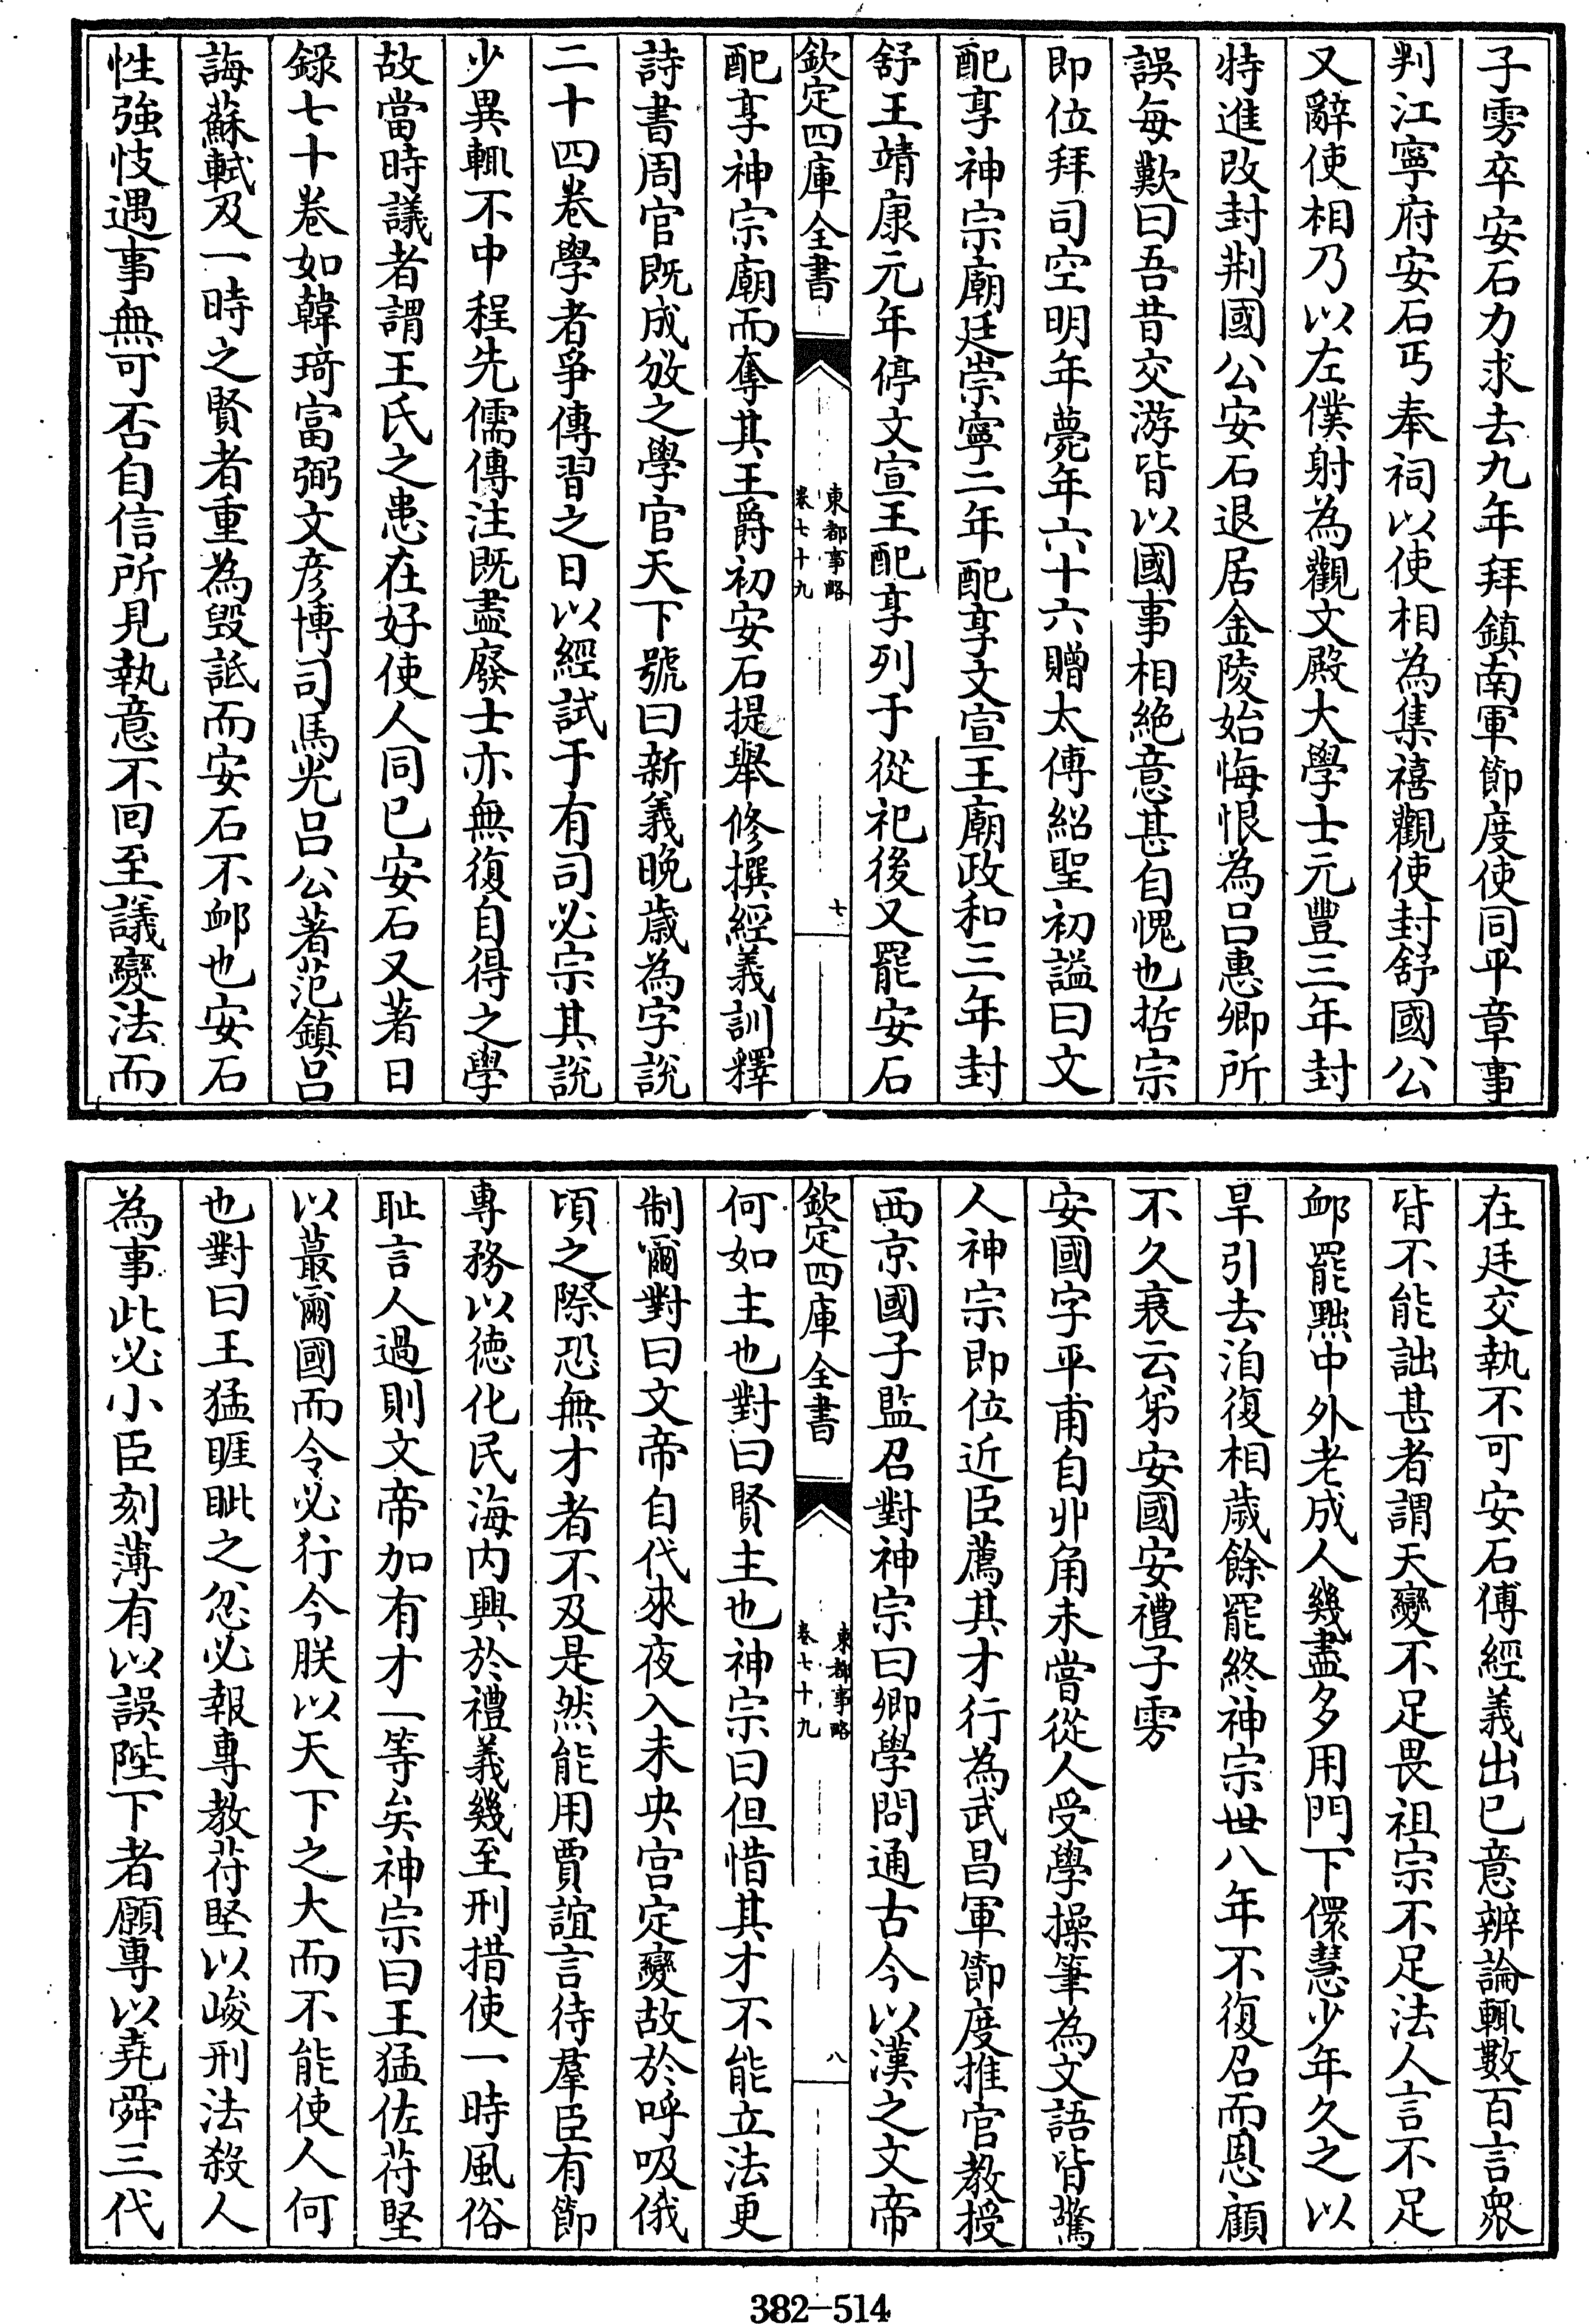 子雱卒安石力求去九年拜鎮南軍節度使同平章事
判江寧府安石丐奉祠以使相為集禧觀使封舒國公
又辭使相乃以左僕射為觀文殿大學士元豐三年封
特進改封荆國公安石退居金陵始悔恨為吕惠卿所
誤每歎曰吾昔交游皆以國事相絶意甚自愧也哲宗
即位拜司空明年薨年六十六贈太傅紹聖初謚曰文
配享神宗廟廷崇寧二年配享文宣王廟政和三年封
舒王靖康元年停文宣王配享列于從祀後又罷安石
欽定四庫全書
東都事略
卷七十九
七
配享神宗廟而奪其王爵初安石提舉修撰經義訓釋
詩書周官既成放之學官天下號曰新義晚歲為字說
二十四卷學者爭傳習之日以經試于有司必宗其說
少異輒不中程先儒傳注既盡廢士亦無復自得之學
故當時議者謂王氏之患在好使人同已安石又著日
錄七十卷如韓琦富弼文彦博司馬光吕公著范鎮吕
誨蘇軾及一時之賢者重為毁詆而安石不卹也安石
性強忮遇事無可否自信所見執意不回至議變法而
在廷交執不可安石傅經義出已意辨論輒數百言衆
皆不能詘甚者謂天變不足畏祖宗不足法人言不足
卹罷黜中外老成人幾盡多用門下儇慧少年久之以
旱引去洎復相歲餘罷終神宗世八年不復召而恩顧
不久衰云弟安國安禮子雱
安國字平甫自丱角未嘗從人受學操筆為文語皆驚
人神宗即位近臣薦其才行為武昌軍節度推官教授
西京國子監召對神宗曰卿學問通古今以漢之文帝
欽定四庫全書
東都事略
卷七十九
八
何如主也對曰賢主也神宗曰但惜其才不能立法更
制爾對曰文帝自代來夜入未央宫定變故於呼吸俄
頃之際恐無才者不及是然能用賈誼言待羣臣有節
專務以德化民海内興於禮義幾至刑措使一時風俗
耻言人過則文帝加有才一等矣神宗曰王猛佐苻堅
以蕞爾國而令必行今朕以天下之大而不能使人何
也對曰王猛睚眦之忿必報專教苻堅以峻刑法殺人
為事此必小臣刻薄有以誤陛下者願專以堯舜三代
382-514